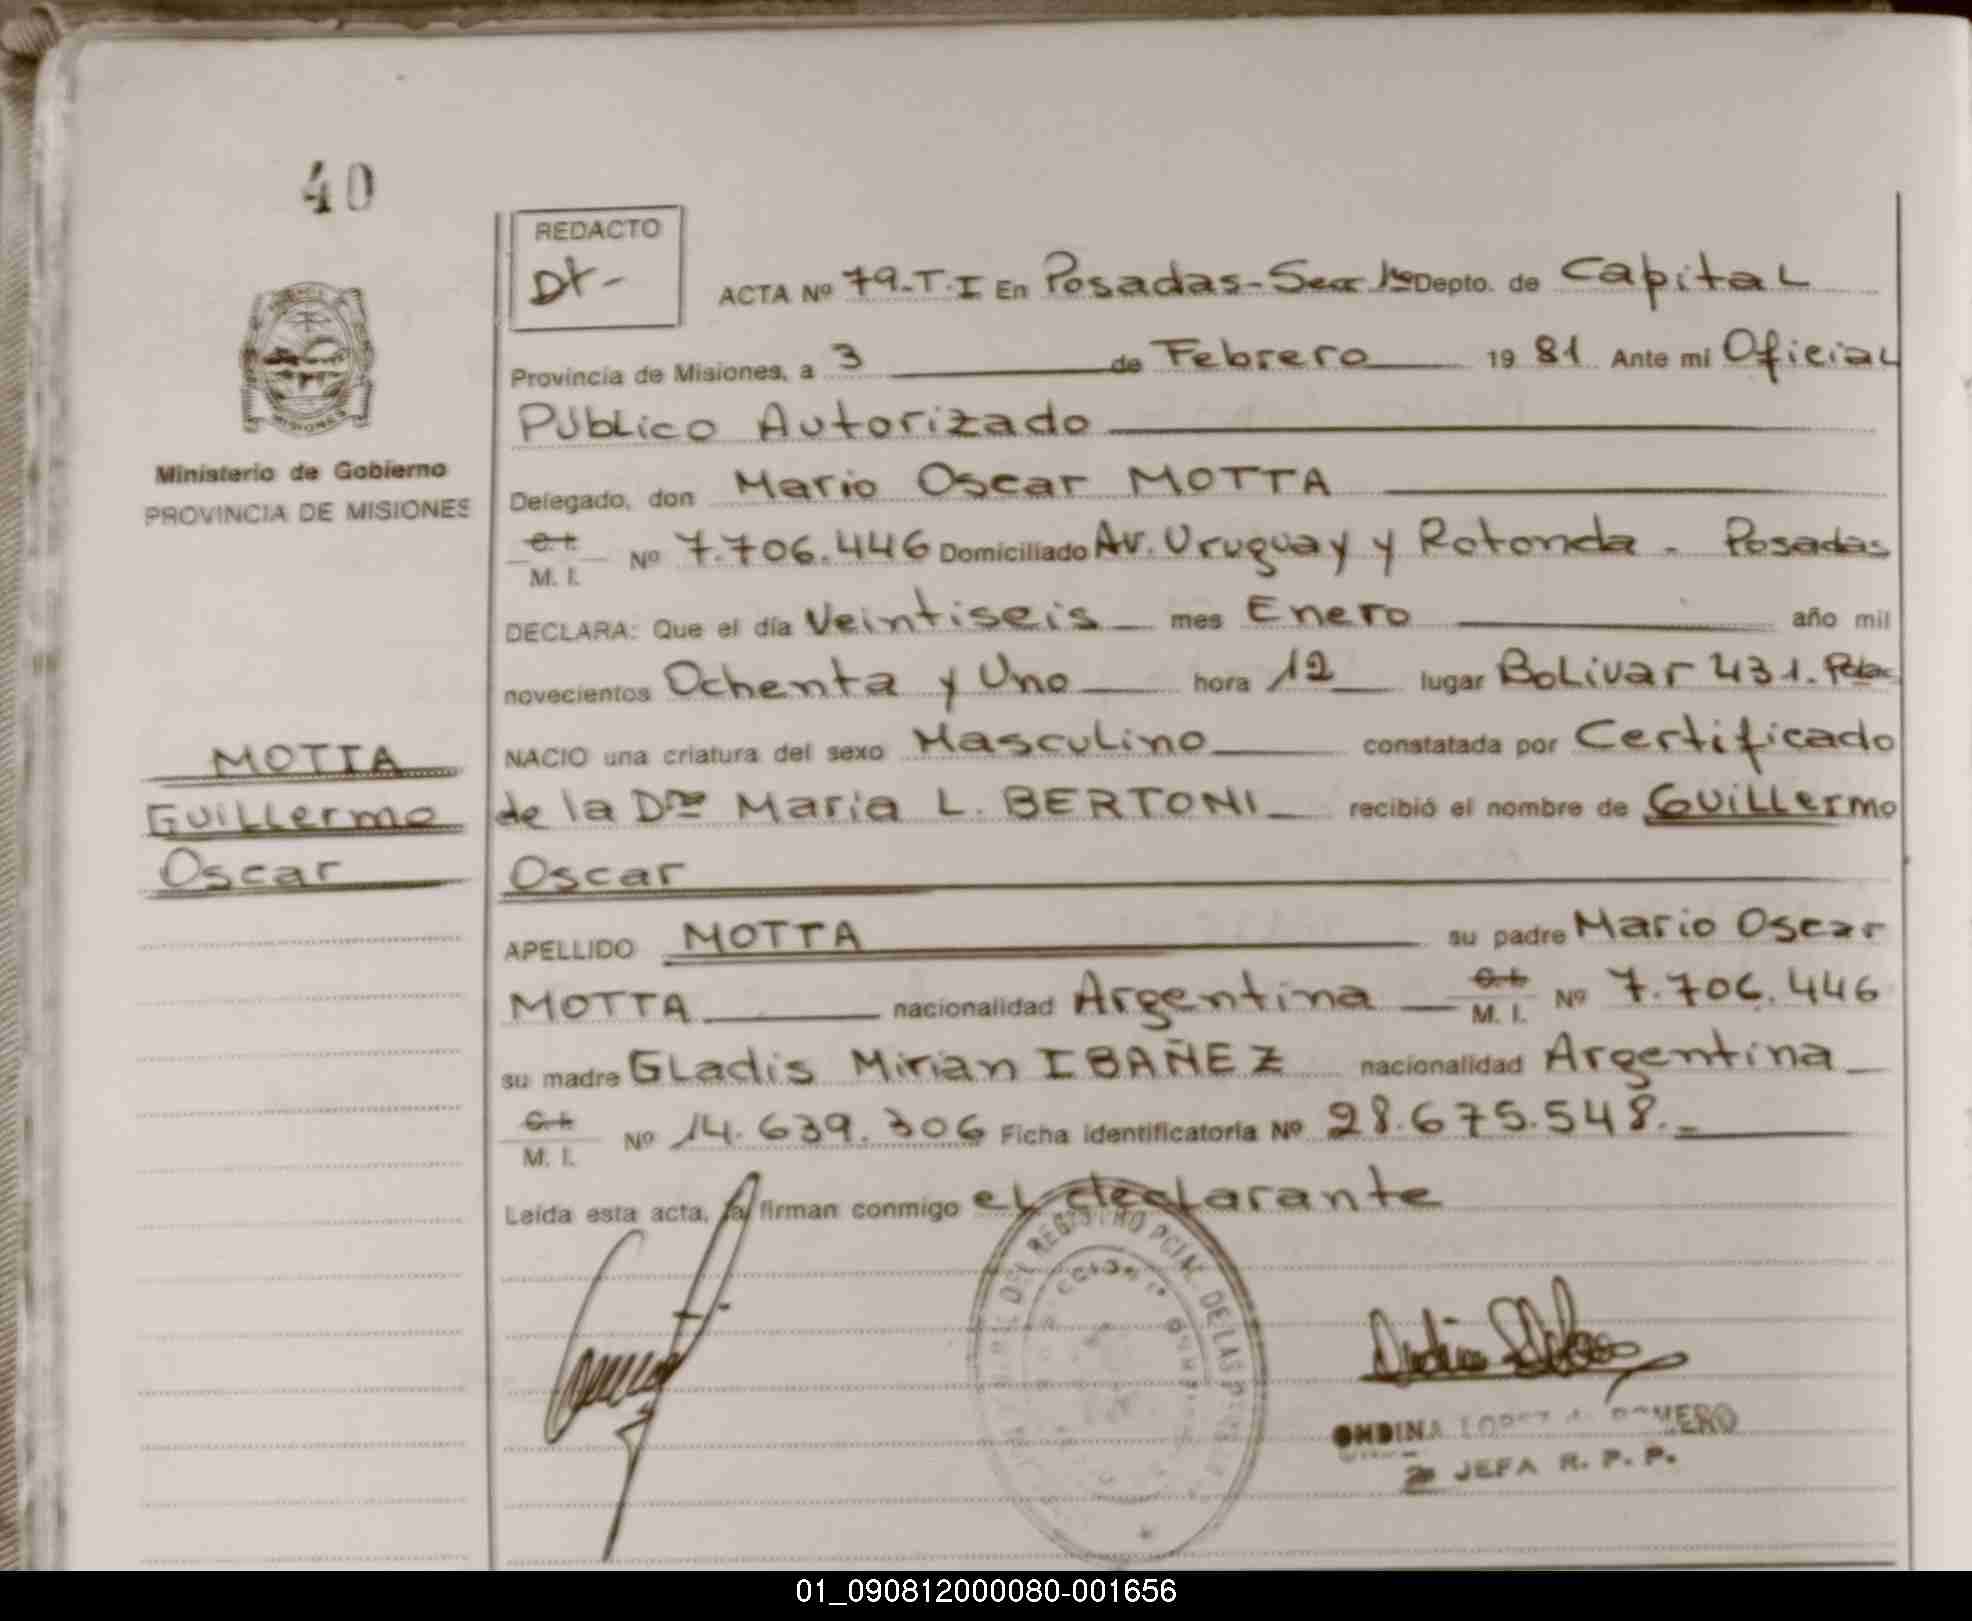 40
REDACTO
Dt-
ACTA Nº 79-T.I En Posadas-Secc 1ª Depto. de Capital
Provincia de Misiones, a 3 de Febrero 1981 Ante mi Oficial
Público Autorizado
Delegado, don Mario Oscar MOTTA
C.I.
M. I. Nº 7.706.446 Domiciliado Av. Uruguay y Rotonda - Posadas
DECLARA: Que el día Veintiseis mes Enero año mil
novecientos Ochenta y Uno hora 12 lugar Bolivar 431. Pdas
NACIO una criatura del sexo Masculino constatada por Certificado
de la Dra Maria L. BERTONI recibió el nombre de Guillermo
Oscar
APELLIDO MOTTA su padre Mario Oscar
MOTTA nacionalidad Argentina C.I. M. I. Nº 7.706.446
su madre Gladis Mirian IBAÑEZ nacionalidad Argentina
C.I.
M. I. Nº 14.639.306 Ficha identificatoria Nº 28.675.548.-
Leída esta acta, la firman conmigo el declarante
MISIONES
Ministerio de Gobierno
PROVINCIA DE MISIONES
MOTTA
Guillermo
Oscar
DEL REGISTRO PCIAL. DE LAS
ONDINA LOPEZ ROMERO
JEFA R. P. P.
01_090812000080-001656